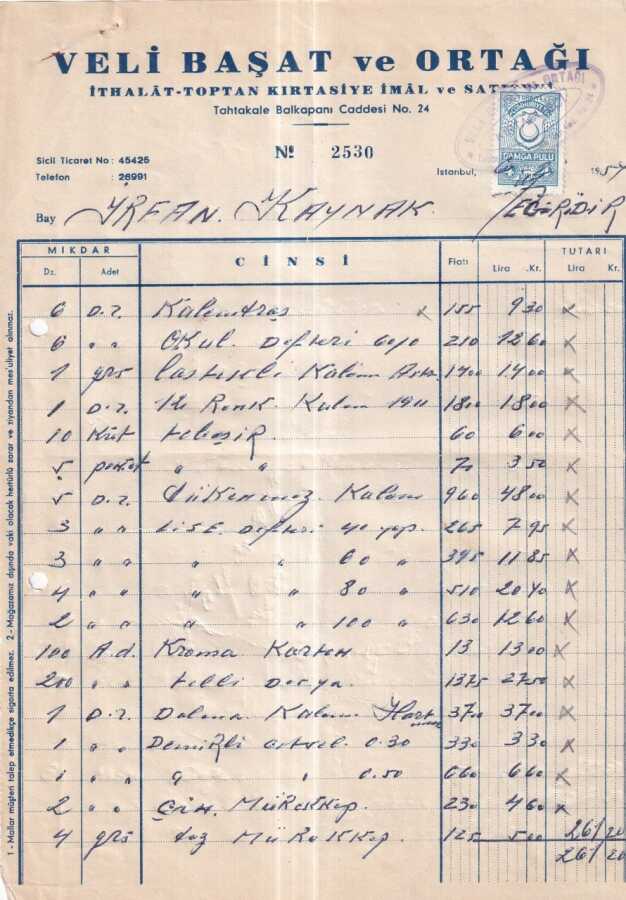 VELİ BAŞAT ve ORTAĞI
İTHALÂT-TOPTAN KIRTASİYE İMÂL ve
Tahtakale Balkapanı Caddesi No. 24
Sicil Ticaret No : 45425
Telefon : 26991
Nº 2530
DAMGA PULU
İstanbul, 195
Bay İRFAN. KAYNAK. EĞİRİDİR
MIKDAR CİNSİ Fiatı TUTARI
Dz. Adet Lira .Kr. Lira Kr.
6 D.z. Kalemtraş 155 930
6 " " Okul Defteri 210 1260
1 grs lastikli Kalem 1400 1400
1 D.z. 12 Renk. Kalem 1800 1800
10 Kut tebeşir 60 600
5 paket " " 70 350
5 D.z. Tükenmez Kalem 960 4800
3 " " LiSE Defteri 40 yap. 265 795
3 " " " " 60 " 395 1185
4 " " " " 80 " 510 2040
2 " " " " 100 " 630 1260
100 A.d. Kroma Karton 13 1300
200 " " telli Dosya. 1375 2750
1 D.z. Dolma Kalem 3700 3700
1 " " Demirli 0.30 330 330
1 " " " " 0.50 660 660
2 " " ÇİN. MÜREKKEP. 230 460
4 grs toz MÜREKKEP. 125 500 261 20
261 20
1 - Mallar müşteri talep etmedikçe sigorta edilmez. 2 - Mağazamız dışında vaki olacak hertürlü zarar ve ziyandan mes'uliyet alınmaz.